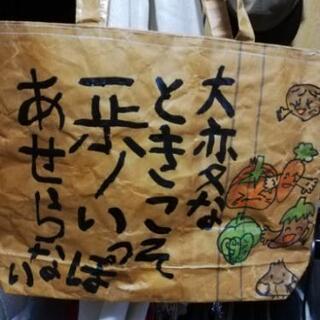 大変な
ときこそ
一歩ノいっぽ
あせらない